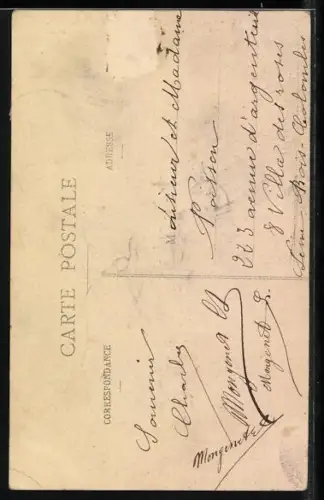 CARTE POSTALE
CORRESPONDANCE
ADRESSE
Souvenir
Charles
Morgenet
Morgenet
Morgenet
Monsieur et Madame
Poisson
223 avenue d'argenteuil
8 Villa des roses
Seine Bois-Colombes